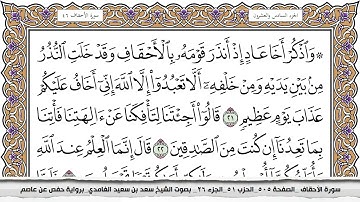 الجزء السادس والعشرون سورة الأحقاف ٤٦
۞ وَٱذْكُرْ أَخَا عَادٍ إِذْ أَنذَرَ قَوْمَهُۥ بِٱلْأَحْقَافِ وَقَدْ خَلَتِ ٱلنُّذُرُ
مِنۢ بَيْنِ يَدَيْهِ وَمِنْ خَلْفِهِۦٓ أَلَّا تَعْبُدُوٓا۟ إِلَّا ٱللَّهَ إِنِّىٓ أَخَافُ عَلَيْكُمْ
عَذَابَ يَوْمٍ عَظِيمٍ ٢١ قَالُوٓا۟ أَجِئْتَنَا لِتَأْفِكَنَا عَنْ ءَالِهَتِنَا فَأْتِنَا
بِمَا تَعِدُنَآ إِن كُنتَ مِنَ ٱلصَّٰدِقِينَ ٢٢ قَالَ إِنَّمَا ٱلْعِلْمُ عِندَ ٱللَّهِ
سورة الأحقاف _الصفحة ٥٠٥_ الحزب ٥١_ الجزء ٢٦_ بصوت الشيخ سعد بن سعيد الغامدي برواية حفص عن عاصم